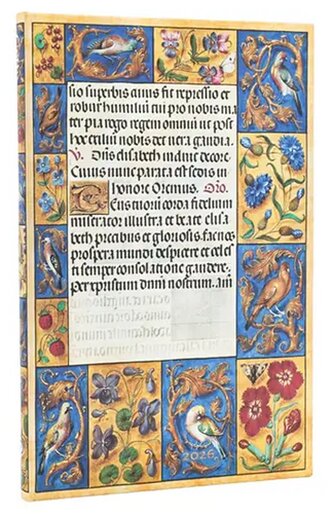 sio superbis annis fit repressio et
robur humiliū tui pro nobis ma
ter pia rogo regem omniū ut post
hoc exiliū nobis det vera gaudia.
V. Dn̄s elisabeth indiuit decore.
Cuius nunc parata est sedis in
honore Oremus. Oro.
Eus tuorū corda fidelium
miserator illustra et beate elisa
beth precibus et gloriosis fac nos
prospera mundi despicere et celes
ti semper consolatione gaudere.
per xpristum dn̄m nostrum. am
2026